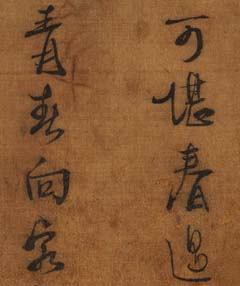 可堪春過
青春向客